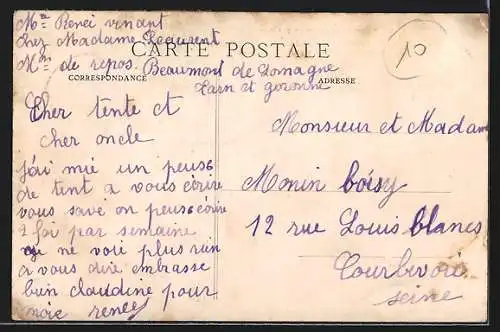 Mr Renei vinant
Chez Madame Laurent
Mon de repos. Beaumont de Lomagne
Tarn et goronne
CARTE POSTALE
CORRESPONDANCE
ADRESSE
10
Cher tente et
cher oncle
j'ai mié un peuse
de tent a vous écrire
vous savé on peuse écrire
2 foi par semaine
je ne voie plus rien
a vous dire embrasse
buin claudine pour
moie renee
Monsieur et Madam
Monin boisy
12 rue Louis blancs
Courbevoie
seine